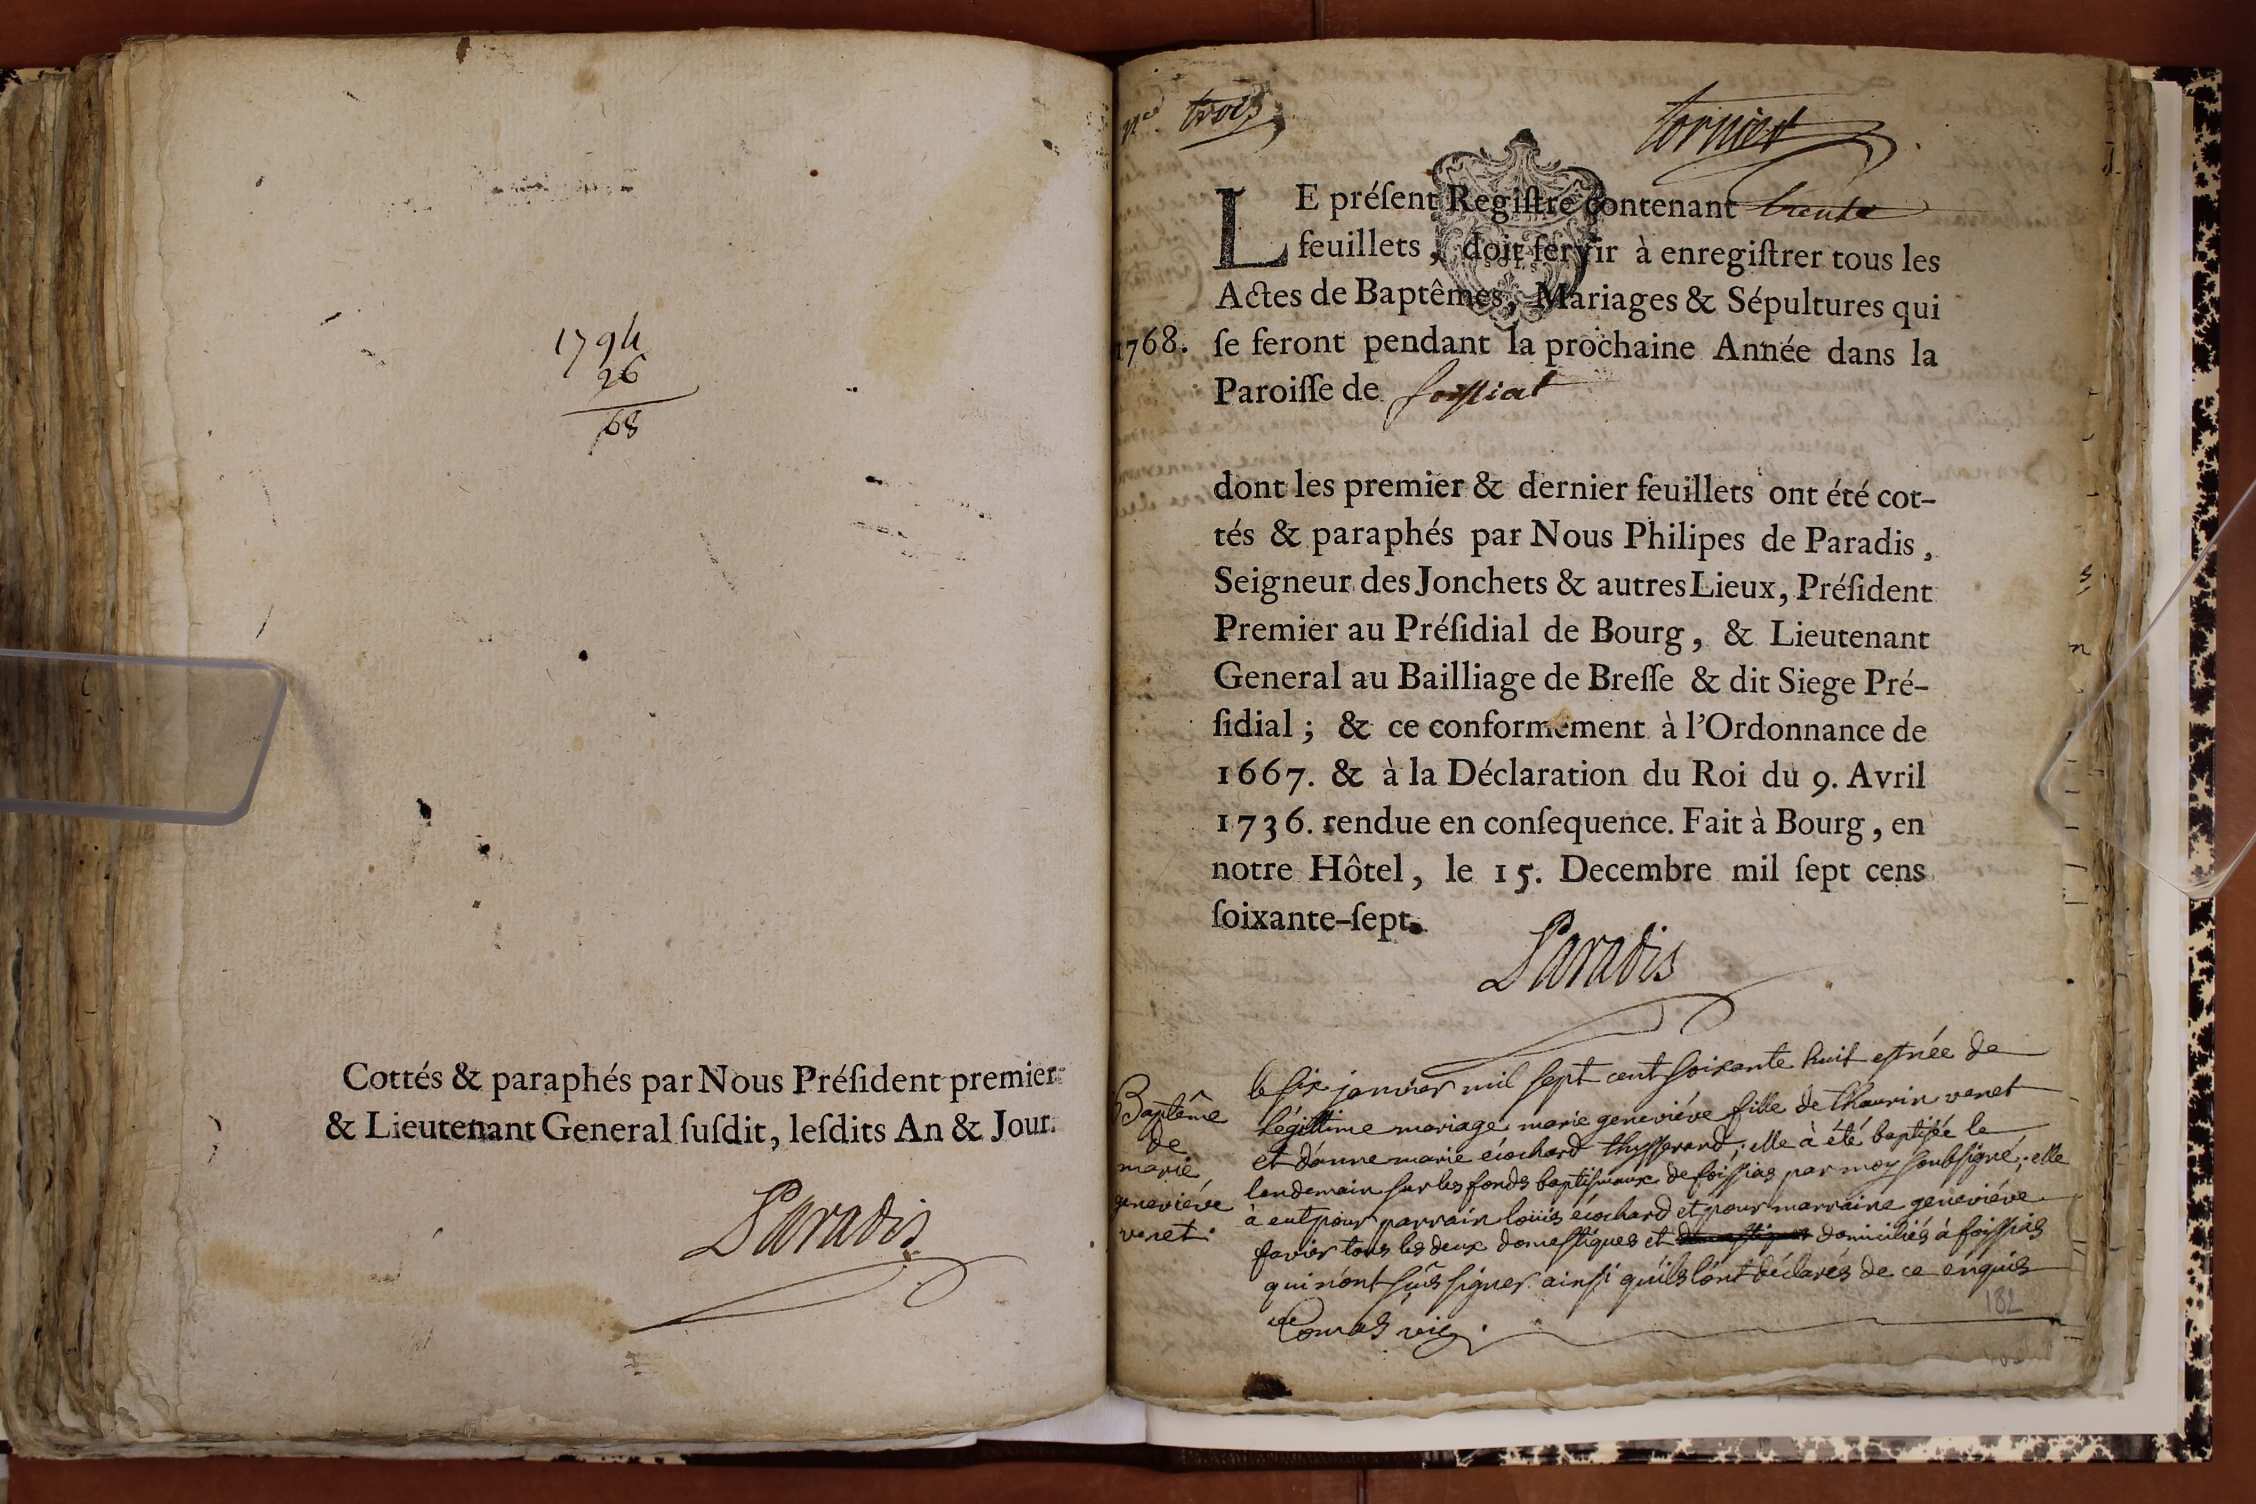 1794
26
68
Cottés & paraphés par Nous Préſident premier
& Lieutenant General ſuſdit, leſdits An & Jour.
Paradis
trois
LE préſent Regiſtre contenant trente
feuillets, doit ſervir à enregiſtrer tous les
Actes de Baptêmes, Mariages & Sépultures qui
1768. ſe feront pendant la prochaine Année dans la
Paroiſſe de foissiat
dont les premier & dernier feuillets ont été cot-
tés & paraphés par Nous Philipes de Paradis,
Seigneur des Jonchets & autres Lieux, Préſident
Premier au Préſidial de Bourg, & Lieutenant
General au Bailliage de Breſſe & dit Siege Pré-
ſidial ; & ce conformement à l'Ordonnance de
1667. & à la Déclaration du Roi du 9. Avril
1736. rendue en conſequence. Fait à Bourg, en
notre Hôtel, le 15. Decembre mil ſept cens
ſoixante-ſept.
Paradis
Baptême
de
marie
geneviéve
venet.
le six janvier mil sept cent soixante huit est née de
légittime mariage marie geneviéve fille de thaurin venet
et d'anne marie écochard thysserand; elle à été baptisée le
lendemain sur les fonds baptismaux de foissias par moy soubsigné; elle
à eut pour parrain loüis écochard et pour marraine geneviéve
favier tous les deux domestiques et domiciliés à foissias
qui n'ont sçus signer ainsi qu'ils l'ont déclarés de ce enquis
vic
182